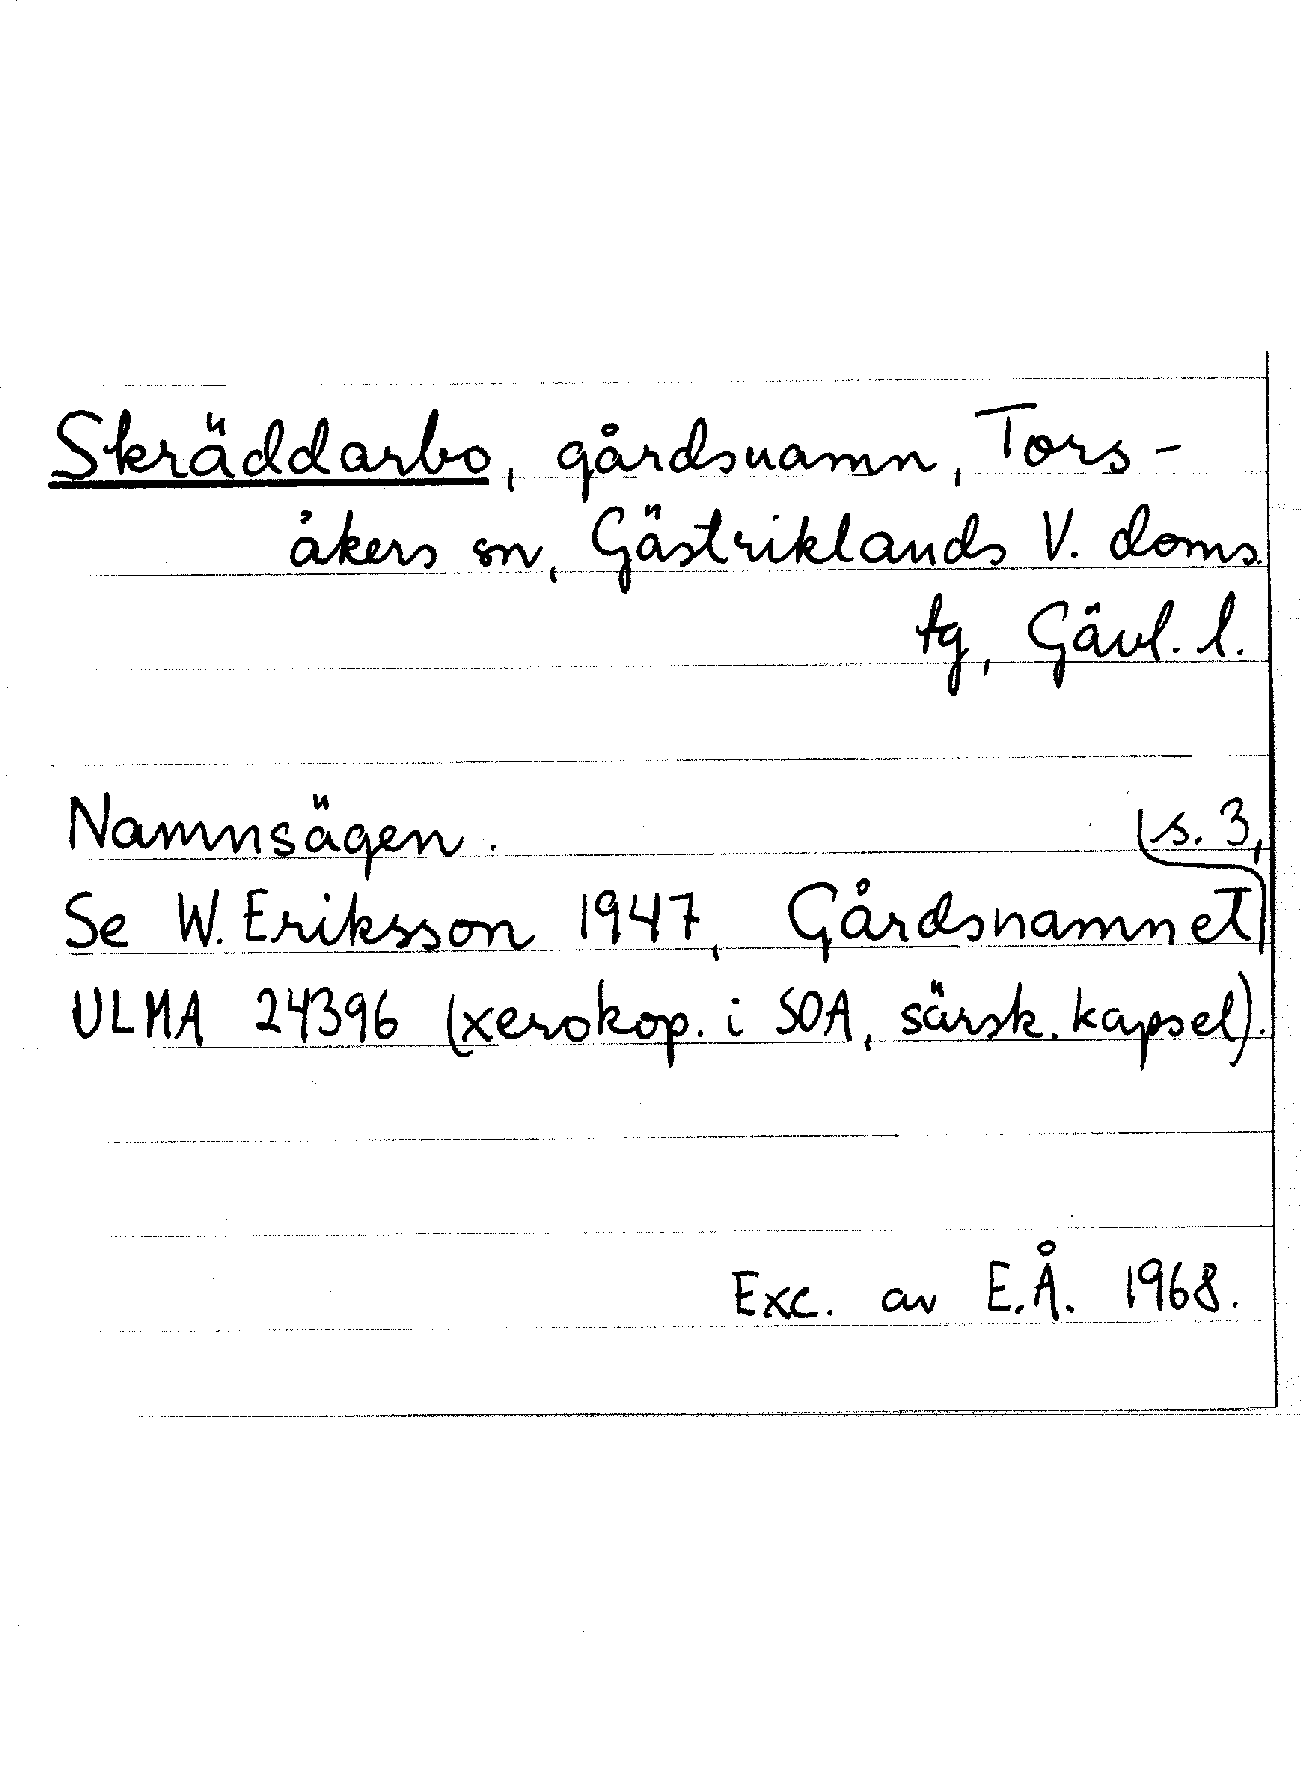 Skräddarbo, gårdsnamn, Tors-
åkers sn, Gästriklands V. doms.
tg, Gävl. l.
Namnsägen.
Se W. Eriksson 1947, Gårdsnamnet
s. 3,
ULMA 24396 (xerokop. i SOA, särsk. kapsel).
Exc. av E.Å. 1968.